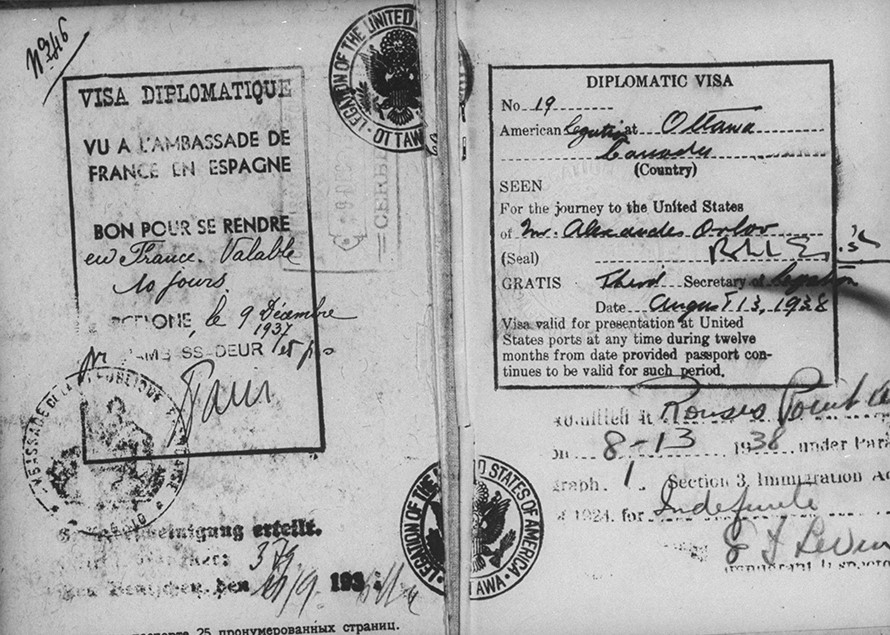 VISA DIPLOMATIQUE
VU A L'AMBASSADE DE
FRANCE EN ESPAGNE
BON POUR SE RENDRE
en France. Valable
10 jours.
le 9 Décembre
1937
LEGATION OF THE UNITED
OTTAWA
DIPLOMATIC VISA
No 19
American Legation at Ottawa
Canada
(Country)
SEEN
For the journey to the United States
of Mr. Alexander Orlov
(Seal)
GRATIS Third Secretary of Legation
Date August 13, 1938
Visa valid for presentation at United
States ports at any time during twelve
months from date provided passport con-
tinues to be valid for such period.
Admitted at Rouses Point
on 8-13 1938 under Para
graph 1 Section 3, Immigration Ac
of 1924. for Indefinite
Immigrant Inspector
LEGATION OF THE UNITED STATES OF AMERICA
OTTAWA
erteilt.
den 193
25 пронумерованных страниц.